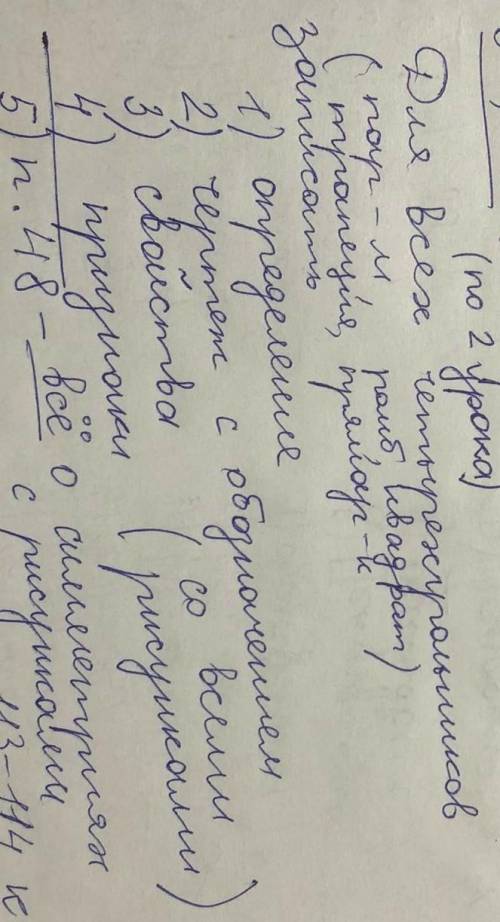 (по 2 урока)
Для всех четырехугольников
(пар-м ромб квадрат)
трапеция, прямоуг-к
записать
1) определение
2) чертеж с обозначением
3) свойства (со всеми рисунками)
4) признаки
5) п. 48 - всё о симметриях
с рисунками
113-114